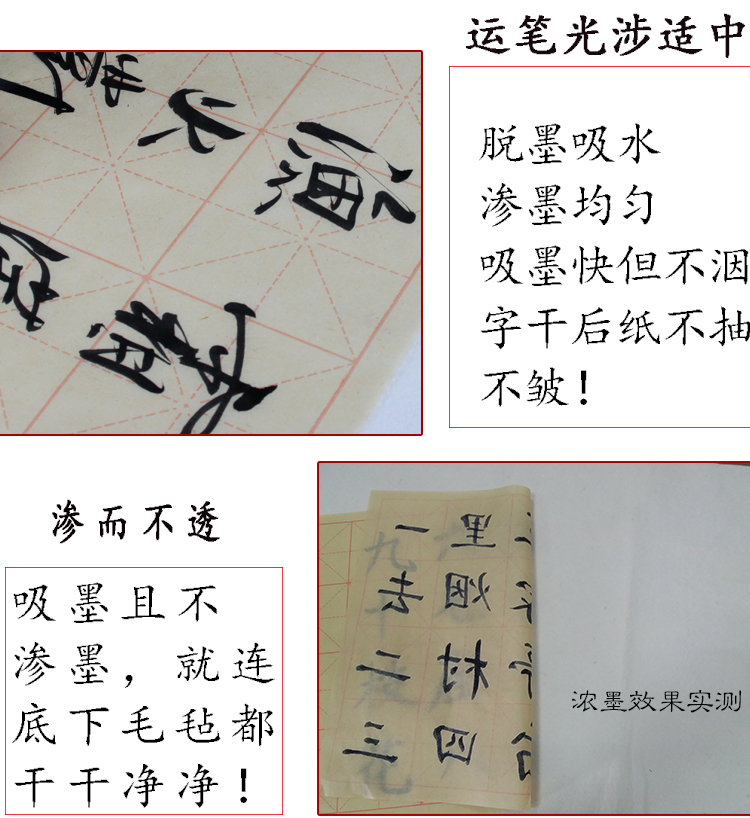 运笔光涉适中
脱墨吸水
渗墨均匀
吸墨快但不洇
字干后纸不抽
不皱！
火
渗而不透
吸墨且不
渗墨，就连
底下毛毡都
干干净净！
一去二三
里烟村四
浓墨效果实测